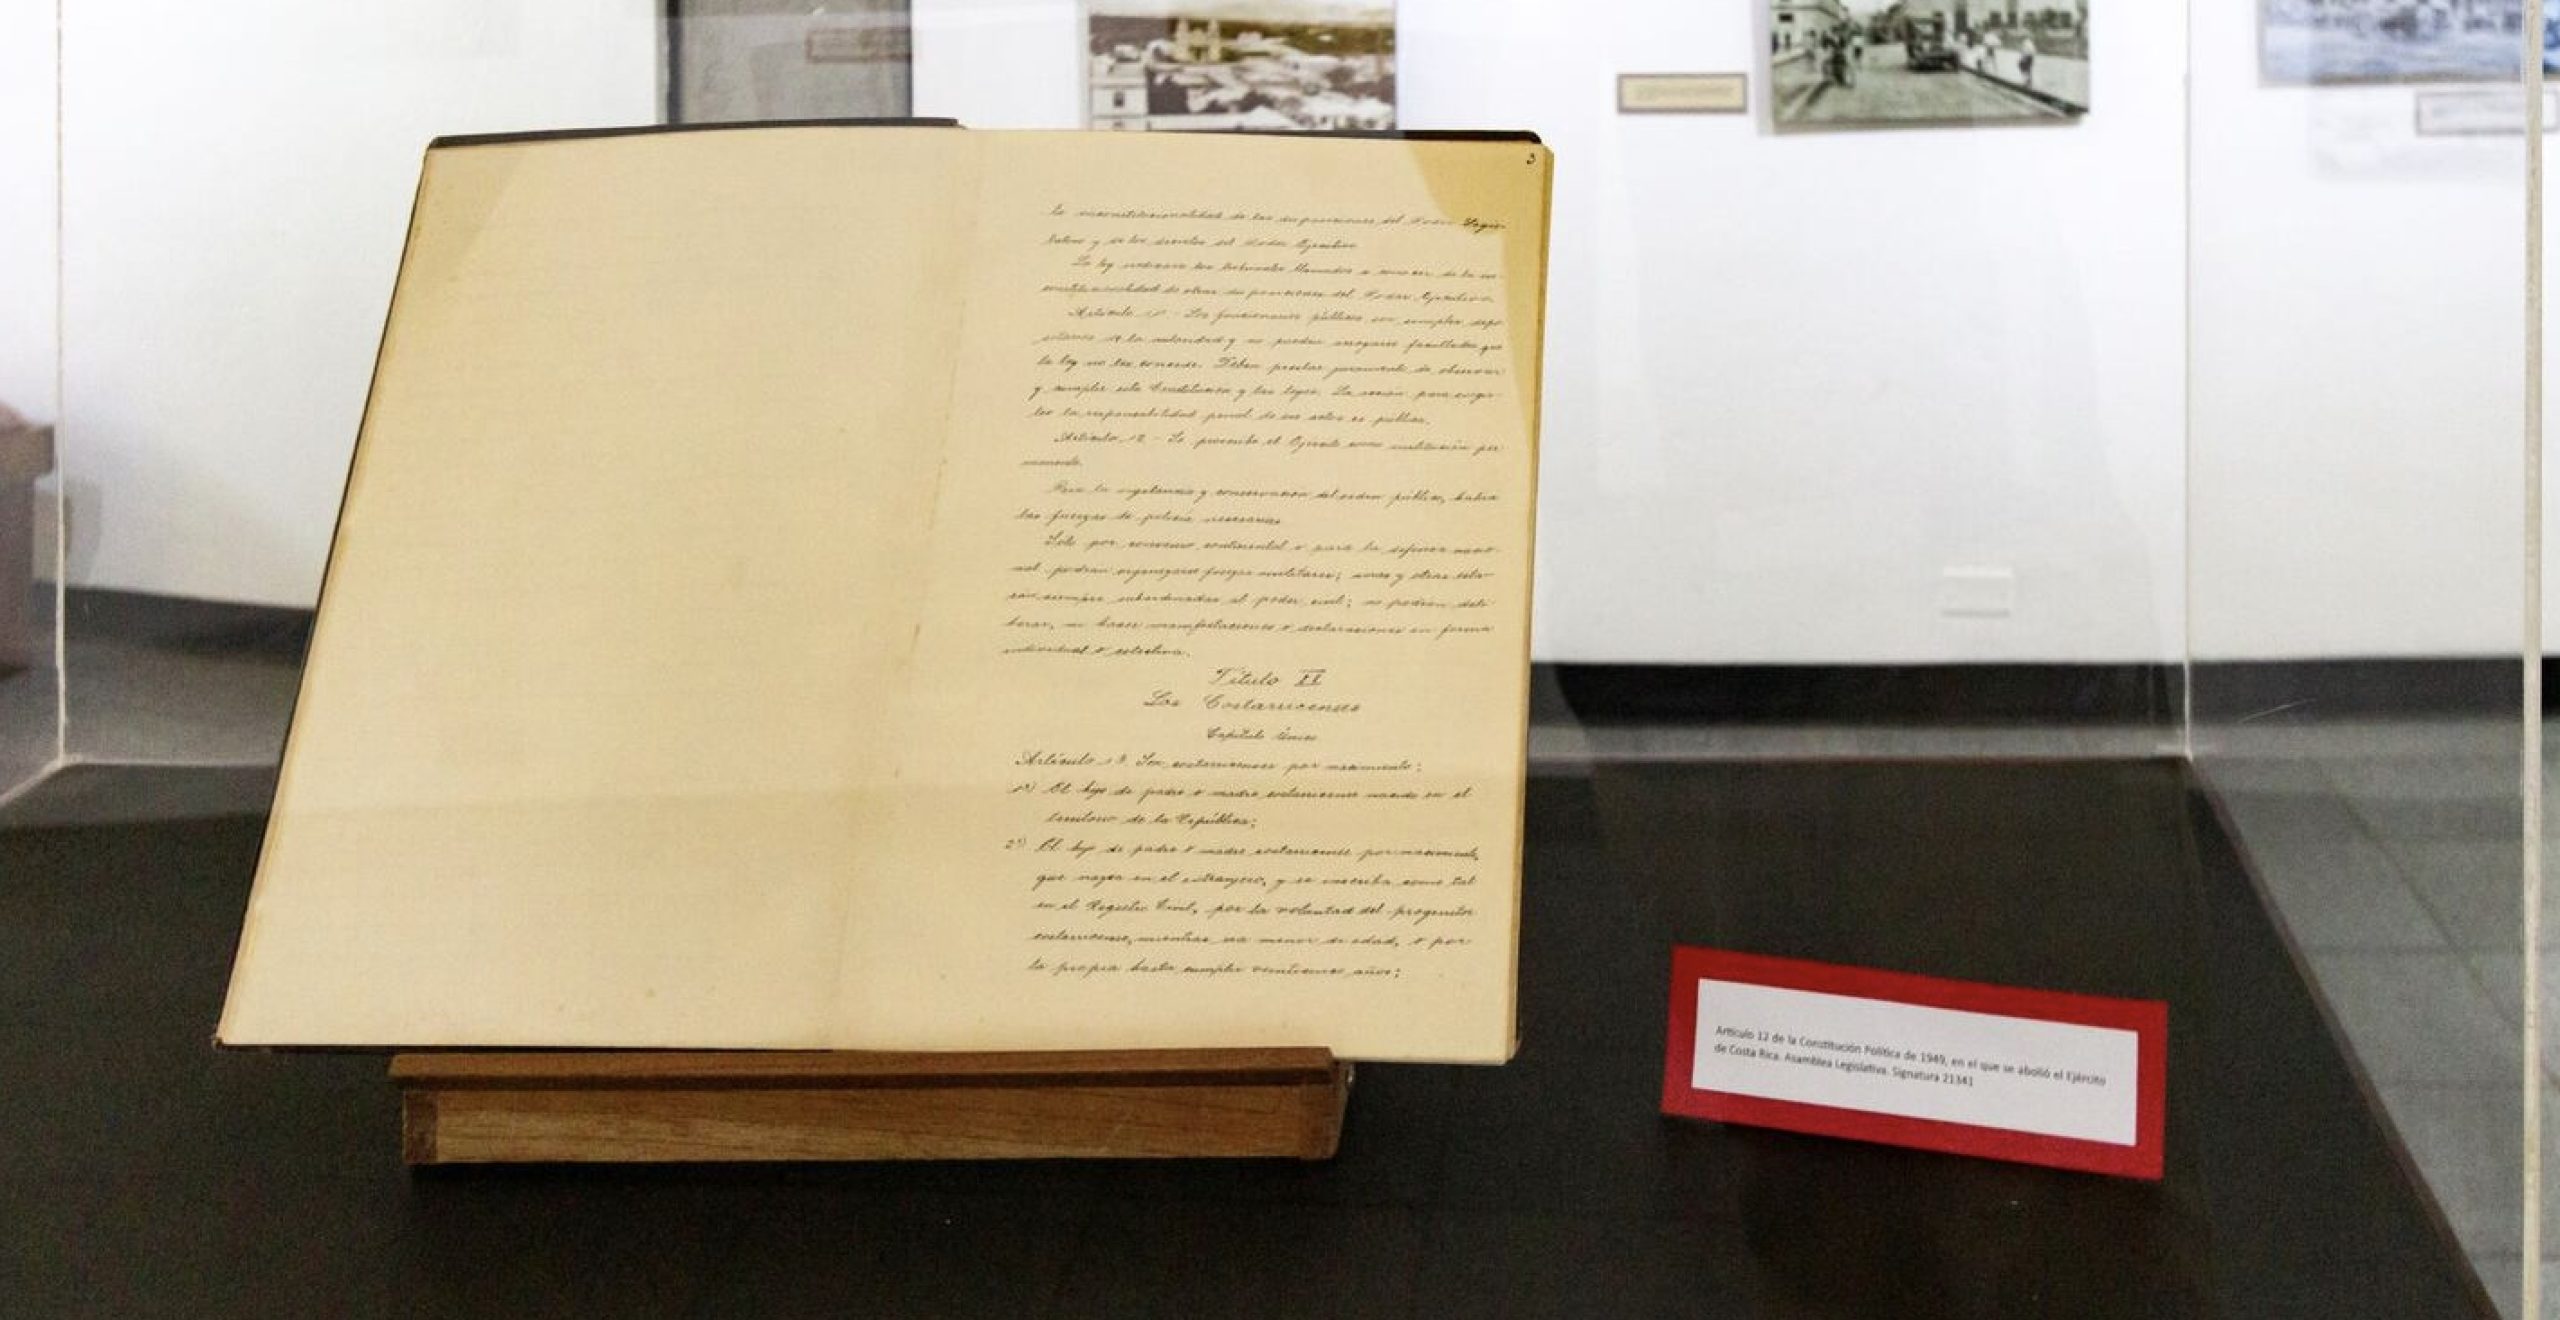 3
la inconstitucionalidad de las disposiciones del Poder Legis-
lativo y de los decretos del Poder Ejecutivo.
La ley indicará los tribunales llamados a conocer de la in-
constitucionalidad de otras disposiciones del Poder Ejecutivo.
Artículo 11 - Los funcionarios públicos son simples depo-
sitarios de la autoridad y no pueden arrogarse facultades que
la ley no les concede. Deben prestar juramento de observar
y cumplir esta Constitución y las leyes. La acción para exigir-
les la responsabilidad penal de sus actos es pública.
Artículo 12 - Se proscribe el Ejército como institución per-
manente.
Para la vigilancia y conservación del orden público, habrá
las fuerzas de policía necesarias.
Sólo por convenio continental o para la defensa nacio-
nal podrán organizarse fuerzas militares; unas y otras esta-
rán siempre subordinadas al poder civil; no podrán deli-
berar, ni hacer manifestaciones o declaraciones en forma
individual o colectiva.
Título II
Los Costarricenses
Capítulo Único
Artículo 13. Son costarricenses por nacimiento:
1º) El hijo de padre o madre costarricense nacido en el
territorio de la República;
2º) El hijo de padre o madre costarricense por nacimiento,
que nazca en el extranjero, y se inscriba como tal
en el Registro Civil, por la voluntad del progenitor
costarricense, mientras sea menor de edad, o por
la propia hasta cumplir veinticinco años;
Artículo 12 de la Constitución Política de 1949, en el que se abolió el Ejército
de Costa Rica. Asamblea Legislativa. Signatura 21341